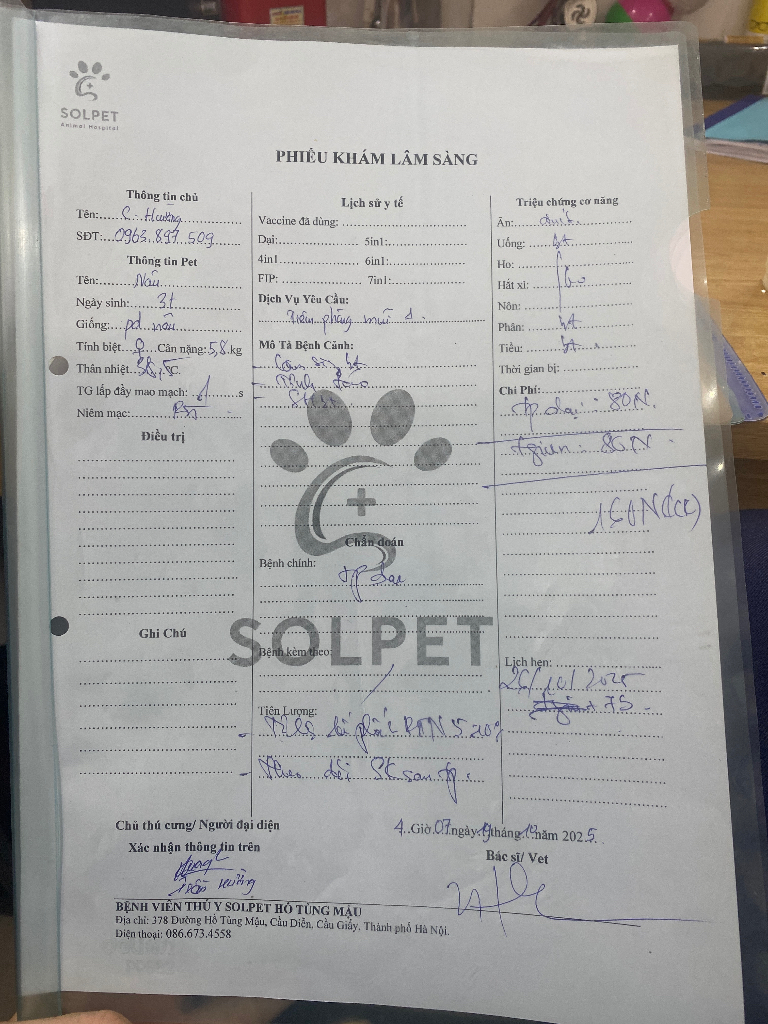 SOLPET
Animal Hospital
PHIẾU KHÁM LÂM SÀNG
Thông tin chủ
Tên: C. Hường
SĐT: 0963.897.509
Thông tin Pet
Tên: Nâu
Ngày sinh: 3t
Giống: pd nâu
Tính biệt ♀ Cân nặng: 5,8 kg
Thân nhiệt 38,5
TG lấp đầy mao mạch: 1 s
Niêm mạc:
Điều trị
Ghi Chú
Lịch sử y tế
Vaccine đã dùng:
Dại: 5in1:
4in1 6in1:
FIP: 7in1:
Dịch Vụ Yêu Cầu:
Tiêm phòng mũi d
Mô Tả Bệnh Cảnh:
Chẩn đoán
Bệnh chính:
tp dại
SOLPET
Bệnh kèm theo:
Tiên Lượng:
Theo dõi SK sau tp
Triệu chứng cơ năng
Ăn:
Uống: bt
Ho:
Hắt xì:
Nôn:
Phân: bt
Tiểu: bt
Thời gian bị:
Chi Phí:
tp dại: 80N
t giun: 80N
160N (ck)
Lịch hẹn:
26/10/2025
Chủ thú cưng/ Người đại diện
Xác nhận thông tin trên
Trần Hường
4 Giờ 07 ngày 19 tháng 10 năm 2025
Bác sĩ/ Vet
BỆNH VIỆN THÚ Y SOLPET HỒ TÙNG MẬU
Địa chỉ: 378 Đường Hồ Tùng Mậu, Cầu Diễn, Cầu Giấy, Thành phố Hà Nội.
Điện thoại: 086.673.4558